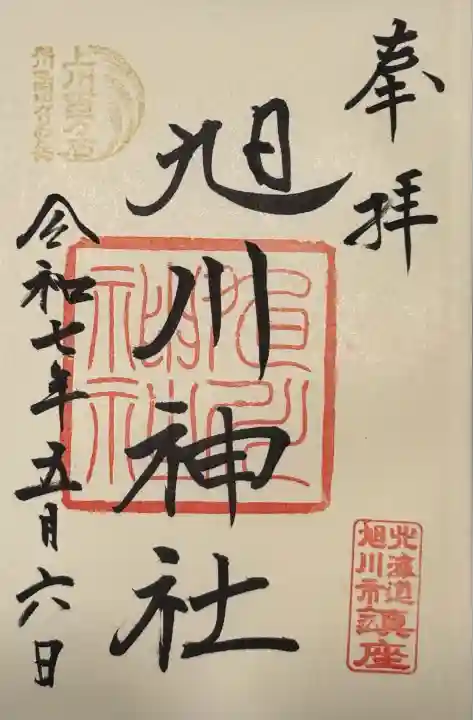 奉拝
旭川神社
令和七年五月六日
北海道
旭川市鎮座